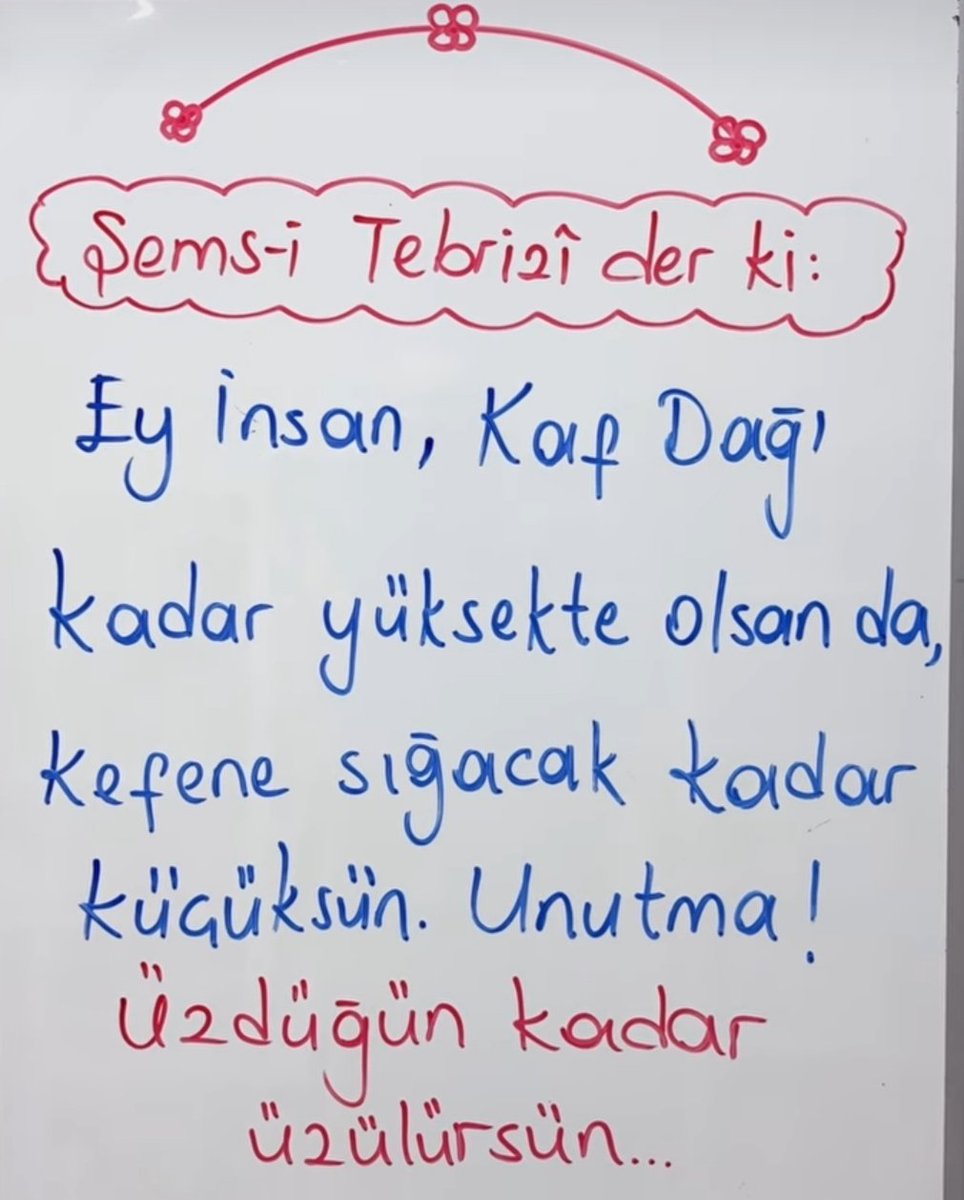 Şems-i Tebrizî der ki:
Ey İnsan, Kaf Dağı
kadar yüksekte olsan da,
kefene sığacak kadar
küçüksün. Unutma!
Üzdüğün kadar
üzülürsün...